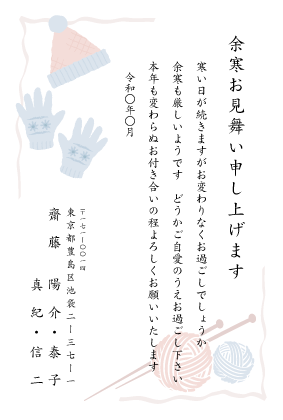 余寒お見舞い申し上げます
寒い日が続きますがお変わりなくお過ごしでしょうか
余寒も厳しいようです　どうかご自愛のうえお過ごし下さい
本年も変わらぬお付き合いの程よろしくお願いいたします
令和〇年〇月
〒一七一-〇〇一四
東京都豊島区池袋二-三七-一
齋藤　陽介・泰子
真紀・信二